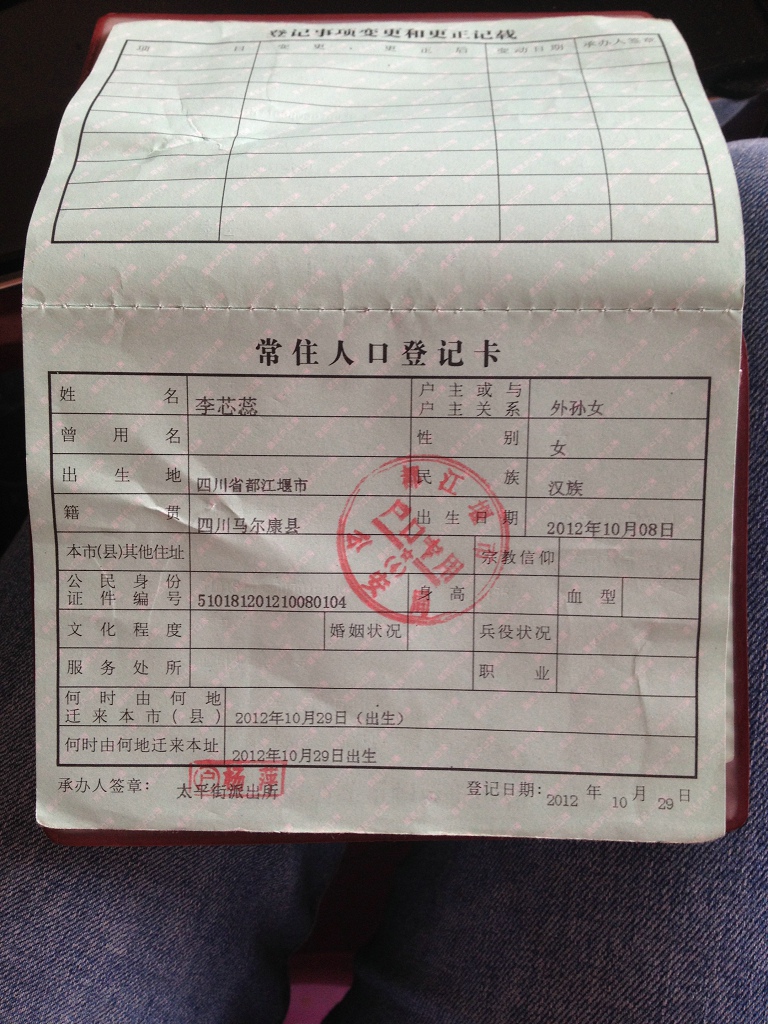 登记事项变更和更正记载
项 目 变 更 、 更 正 后 变动日期 承办人签章
常住人口登记卡
姓 名 李芯蕊 户主或与户主关系 外孙女
曾用名 性别 女
出生地 四川省都江堰市 民族 汉族
籍贯 四川马尔康县 出生日期 2012年10月08日
本市(县)其他住址 宗教信仰
公民身份证件编号 510181201210080104 身高 血型
文化程度 婚姻状况 兵役状况
服务处所 职业
何时由何地迁来本市(县) 2012年10月29日（出生）
何时由何地迁来本址 2012年10月29日出生
承办人签章： 太平街派出所 登记日期：2012 年 10 月 29 日
户 杨萍
都江堰市公安局
户口专用